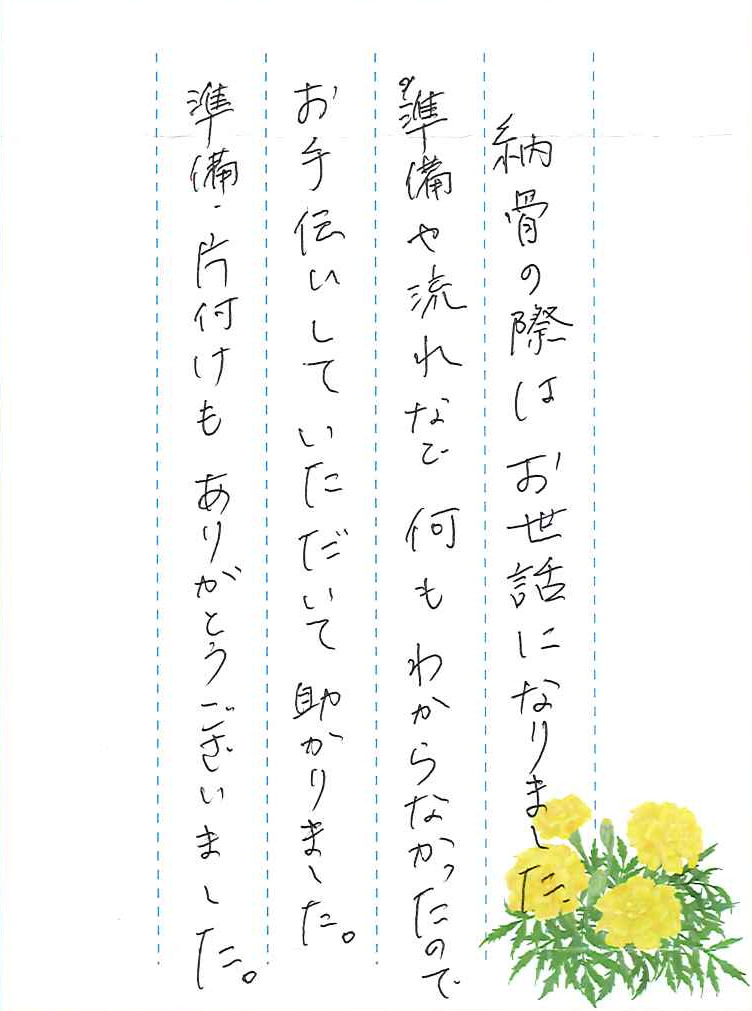 納骨の際はお世話になりました。
準備や流れなど何もわからなかったので
お手伝いしていただいて助かりました。
準備・片付けもありがとうございました。